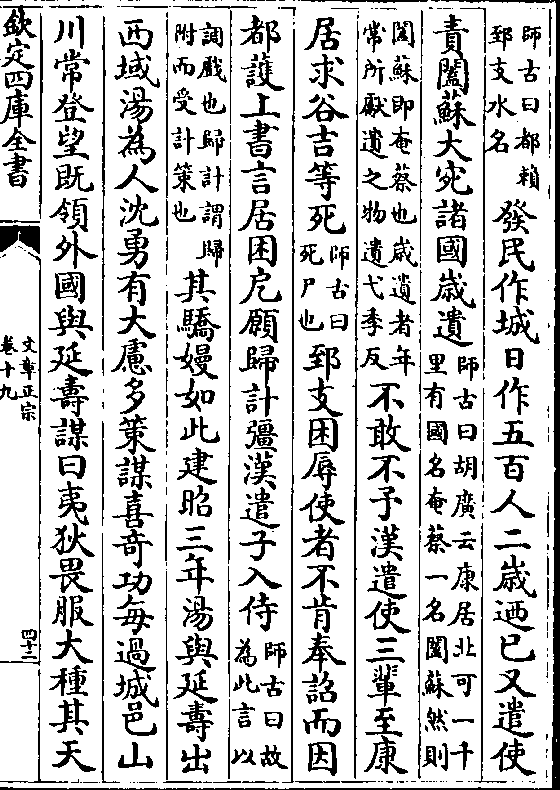 師古曰都賴郅支水名發民作城日作五百人二歳迺已又遣使
責闔蘇大宛諸國歳遺師古曰胡廣云康居北可一千里有國名奄蔡一名闔蘇然則
闔蘇即奄蔡也歳遺者年常所獻遺之物遺弋季反不敢不予漢遣使三輩至康
居求谷吉等死師古曰死尸也郅支困辱使者不肯奉詔而因
都護上書言居困戹願歸計彊漢遣子入侍師古曰故為此言以
調戲也歸計謂歸附而受計策也其驕嫚如此建昭三年湯與延壽出
西域湯為人沈勇有大慮多策謀喜竒功毎過城邑山
川常登望既領外國與延壽謀曰夷狄畏服大種其天
欽定四庫全書
文章正宗
卷十九
四十二